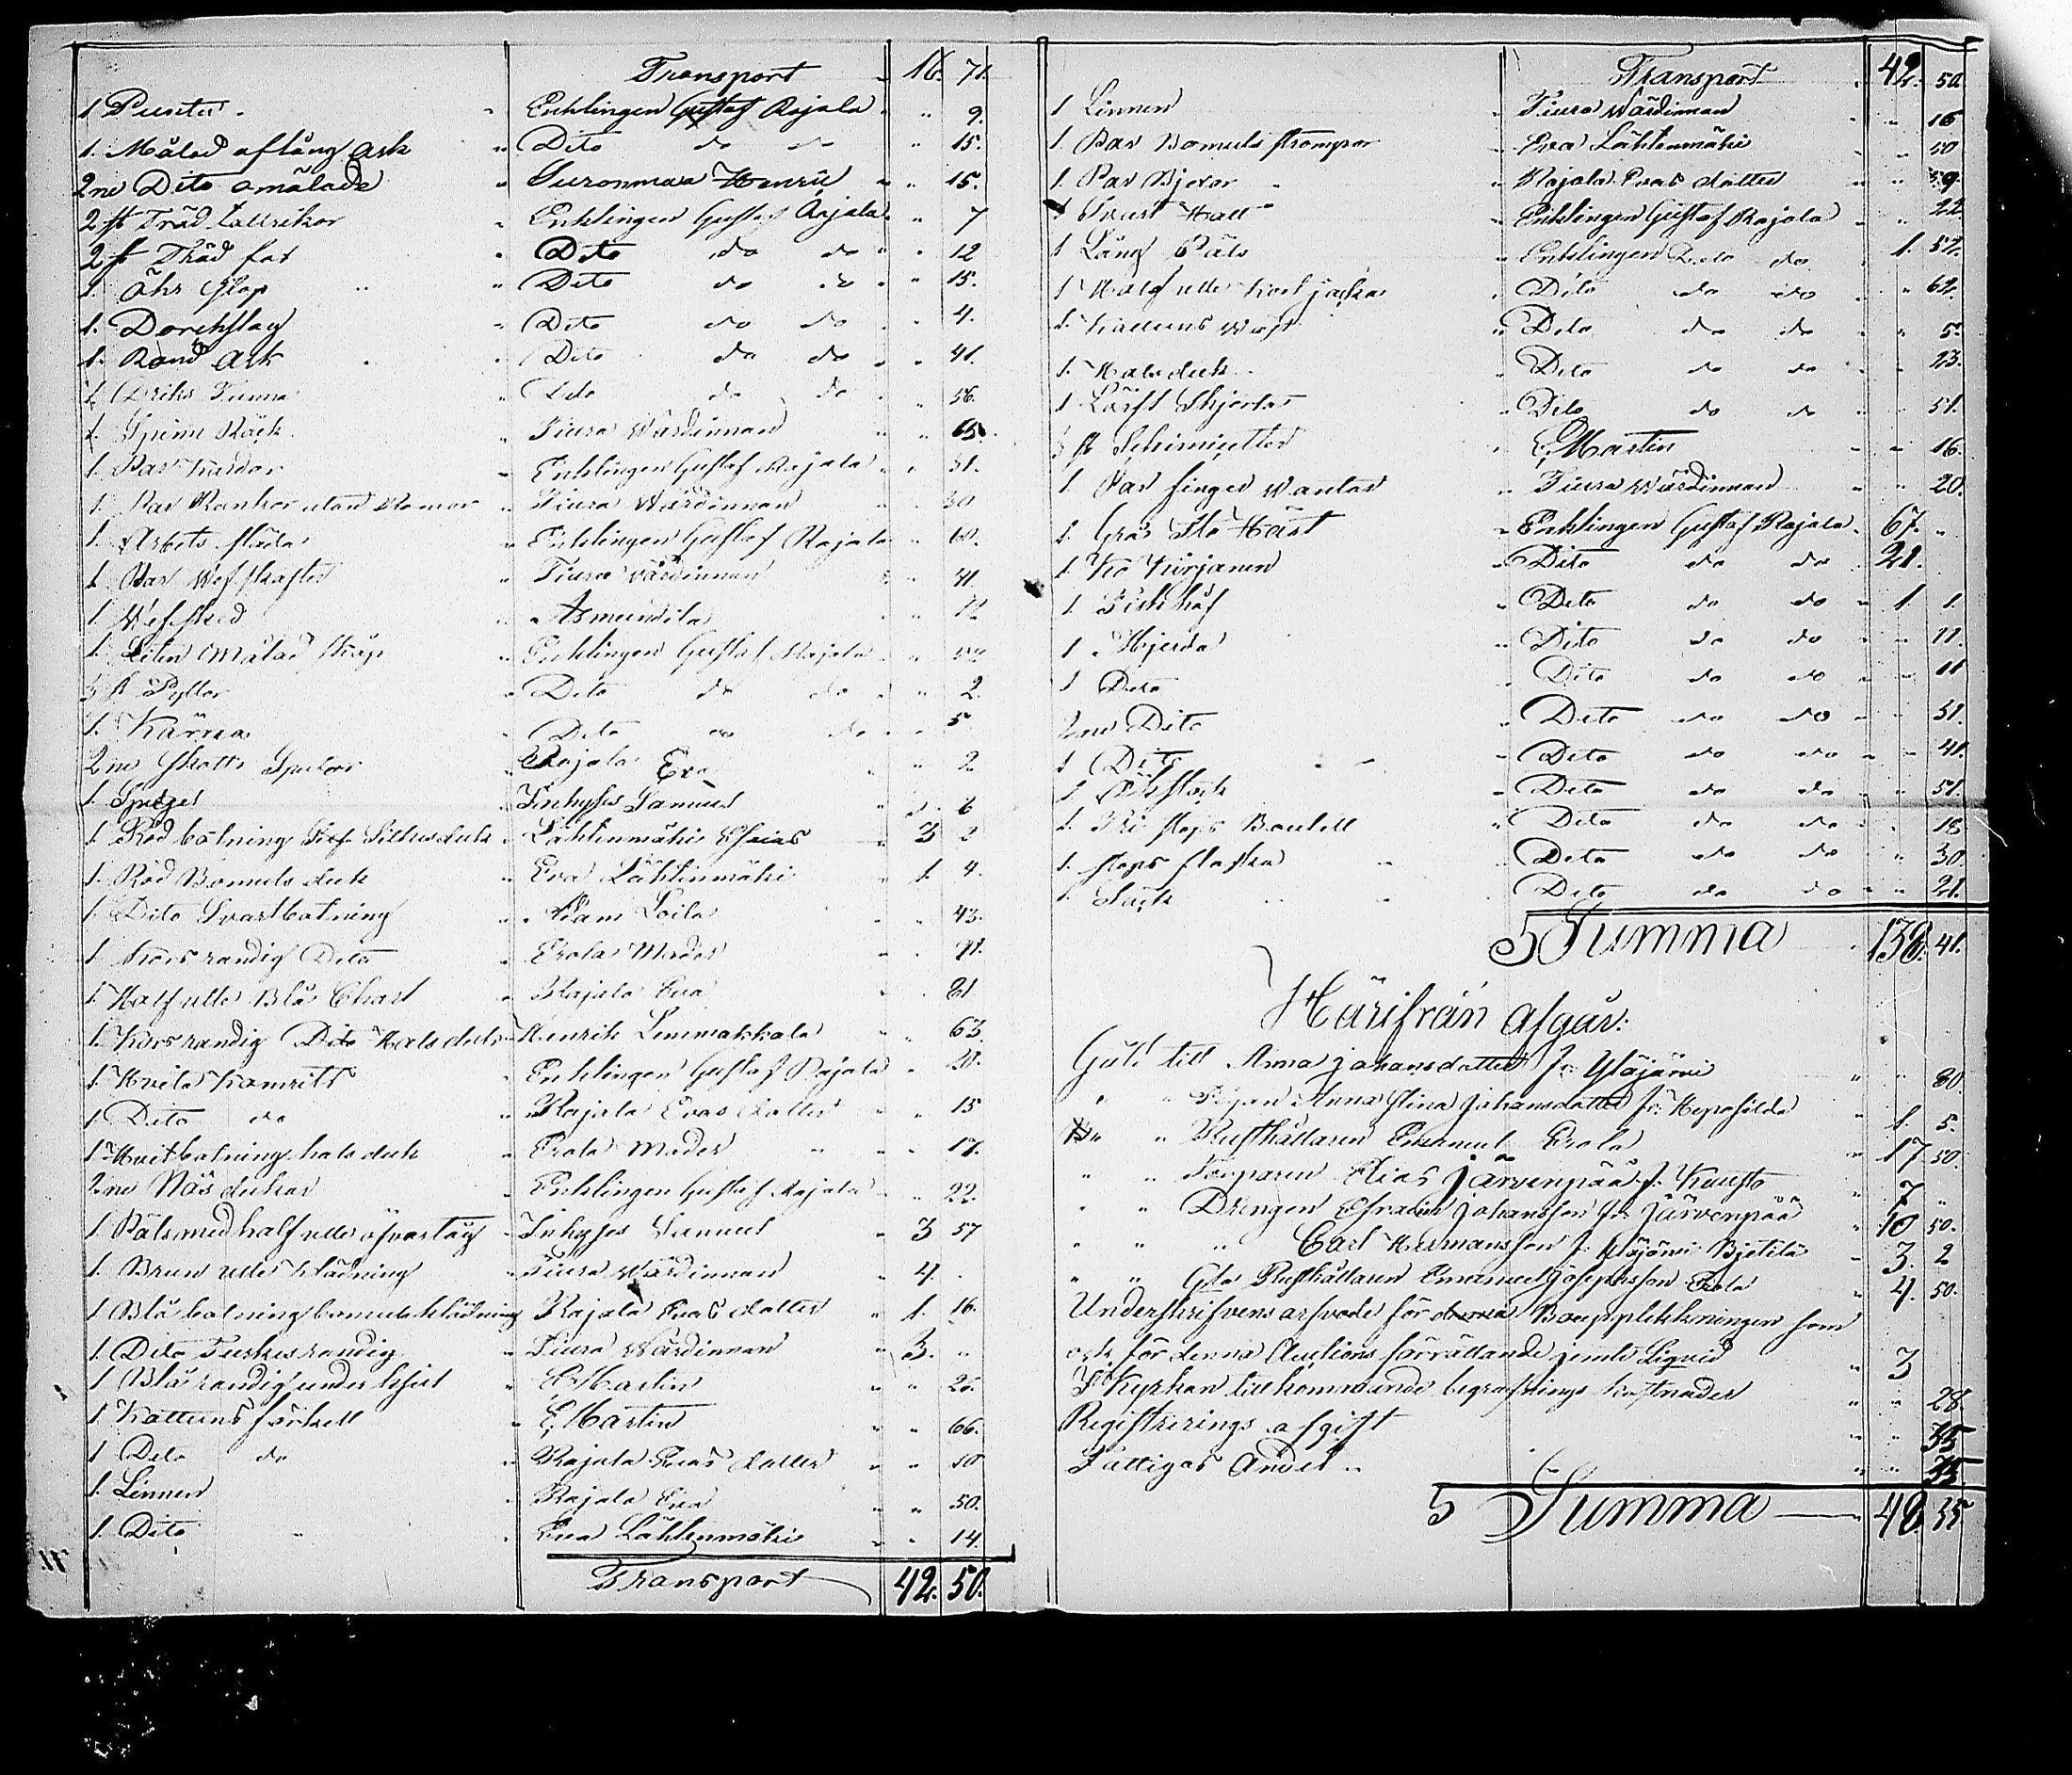 Transport 16. 71.
1 Enklingen Gustaf Rajala 9.
1. Målad aflång ask Dito do do 15.
2ne Dito omålade Suronmaa Henric 15.
2 st Träd tallrikor Enklingen Gustaf Rajala 7
2 st Träd fat Dito do do 12
1. Dito do do 15.
1. Dorchslag Dito do do 4.
1. Rond Ask Dito do do 41.
1. Driks Tunna Dito do do 56.
1. Spinn Råck Tiura Wärdinnan
1. Par Kardor Enklingen Gustaf Rajala 31.
1. Par utan Tiura Wärdinnan 30
1. Arbets släda Enklingen Gustaf Rajala 60.
1. Par Wefskafter Tiura Wärdinnan 41.
1. Wefsked Asmundila 12
1. Liten målad skåp Enklingen Gustaf Rajala
3 st Pyttor Dito do do 2.
1. Kärna Dito do do 5
2ne Skotts Spolar Rajala Eva 2.
1. Spegel Inhyses Samuel 6
1. Röd botning Silkes duk Lähtenmäki Esaias 3 2
1. Röd Bomuls duk Eva Lähtenmäki 1. 4.
1. Dito Svartbotning Adam Soila 43.
1. Kors randig Dito Erola Moder 71.
1. Half ulle Blå Charl Rajala Eva 81
1. Kors randig Dito Halsduk Henrik Lemmakkala 63.
1. Hvita Enklingen Gustaf Rajala 20.
1. Dito do Rajala Evas dotter 15
1. Hvitbotning halsduk Erola Moder 17.
2ne Näs dukar Enklingen Gustaf Rajala 22.
1. Päls med half ulle öfvertåg Inhyses Samuel 3 57
1. Brun ulle klädning Tiura Wärdinnan 4.
1 Blå botning bomuls klädning Rajala Evas dotter 1. 16.
1. Dito Turkis randig Tiura Wärdinnan 3.
1 Blå randig under kjol E Martin 26.
1. Kattuns förkell E Martin 66.
1 Dito do Rajala Evas dotter 50
1. Linnen Rajala Eva 50.
1. Dito Eva Lähtenmäki 14.
Transport 42. 50.
Transport 42. 50.
1 Linnen Tiura Wärdinnan 16
1. Par Bomuls strompor Eva Lähtenmäki 50
1. Par Bjexor Rajala Evas dotter 59.
1 Svart Hatt Enklingen Gustaf Rajala 22.
1 Lång Päls Enklingen Dito do 1. 52.
1 Half ulle kort jacka Dito do do 62.
1. Kattuns Wäst Dito do do 5.
1. Halsduk Dito do do 23.
1 Lärft Skjortas Dito do do 51.
3 st E Martin 16.
1. Par finger Wantar Tiura Wärdinnan 20.
1. Grå Sto Häst Enklingen Gustaf Rajala 67.
1. Ko Kirjanen Dito do do 21.
1. Fisk håf Dito do do 1 1.
1 Skjerda Dito do do 11.
1 Dito Dito do do 11
2ne Dito Dito do do 31.
1 Dito Dito do do 41.
1 Dito do do 51.
1. Tre stops Boutell Dito do do 18
1. stops flaska Dito do do 30.
1. Säck Dito do do 21.
S Summa 138. 41.
Härifrån afgår:
Guld till Anna Johansdotter fr: Yläjärvi 80
" " Pigan Anna Stina Johansdotter fr: 1. 5.
" " Rusthållaren Emanuel Erola 17 50.
" " Torparen Elias Järvenpää fr: Kuusto 7
" " Drengen Efraim Johansson fr: Järvenpää 10 50.
" " " Carl Hermansson fr: Yläjärvi Bjetilä 3. 2
" " Gla Rusthållaren Emanuel Josephsson Erola 4. 50.
Underskrifvens arfvode för denna Bouppteckningen som
ock för denna Auctions förrättande jemte Liqvid 3
Kyrkan tillkommande begrafnings kostnader 28.
Registrerings afgift 35
Fattigas Andel 35
S Summa 48 35